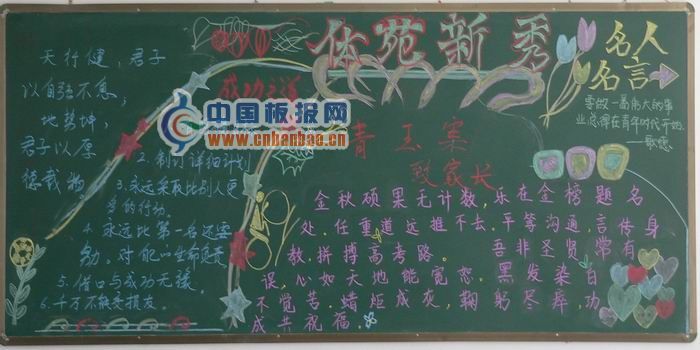 体苑新秀
天行健,君子
以自强不息,
地势坤,
君子以厚
德载物。
成功之道
2.制订详细计划
3.永远采取比别人更
多的行动。
4.永远比第一名还要
勤,对能以生命负责
5.借口与成功无缘
6.千万不能交损友。
中国板报网
www.cnbanbao.cn
青玉案
致家长
金秋硕果无计数,乐在金榜题名
处.任重道远推不去.平等沟通,言传身
教.拼搏高考路。 吾非圣贤常有
误,心如天地能宽恕.黑发染白
不觉苦.蜡炬成灰,鞠躬尽瘁,功
成共祝福.
名人
名言
要做一番伟大的事
业总得在青年时代开始.
——歌德